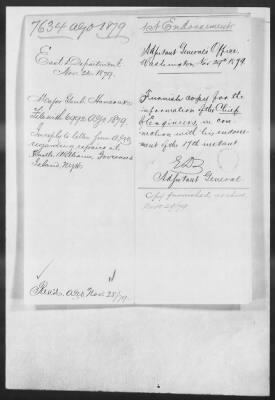 7634 AGO 1879
East Department
Nov. 22 1879.
Major Genl. Hancock
In reply to letter from A.G.O.
regarding repairs at
Castle Williams Governors
Island, N.Y.H.
Rec'd. AGO Nov. 25/79
1st Endorsement
Adjutant General's Office,
Washington Nov 29th 1879.
Furnish copy for the
information of the Chief
of Engineers, in con-
nection with his endorse-
ment of the 17th instant.
Adjutant General
Copy furnished